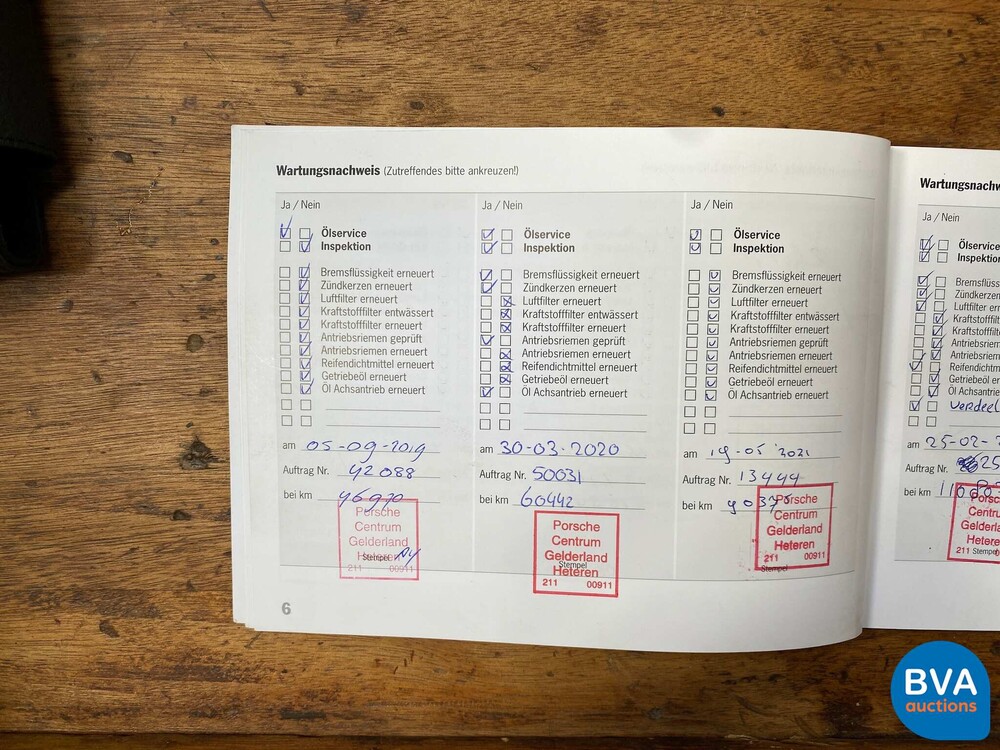 Wartungsnachweis (Zutreffendes bitte ankreuzen!)
Ja / Nein
Ölservice
Inspektion
Bremsflüssigkeit erneuert
Zündkerzen erneuert
Luftfilter erneuert
Kraftstofffilter entwässert
Kraftstofffilter erneuert
Antriebsriemen geprüft
Antriebsriemen erneuert
Reifendichtmittel erneuert
Getriebeöl erneuert
Öl Achsantrieb erneuert
am 05-09-2019
Auftrag Nr. 42088
bei km 46970
Porsche
Centrum
Gelderland
Heteren
Stempel
211 00911
Ja / Nein
Ölservice
Inspektion
Bremsflüssigkeit erneuert
Zündkerzen erneuert
Luftfilter erneuert
Kraftstofffilter entwässert
Kraftstofffilter erneuert
Antriebsriemen geprüft
Antriebsriemen erneuert
Reifendichtmittel erneuert
Getriebeöl erneuert
Öl Achsantrieb erneuert
am 30-03-2020
Auftrag Nr. 50031
bei km 60442
Porsche
Centrum
Gelderland
Stempel
Heteren
211 00911
Ja / Nein
Ölservice
Inspektion
Bremsflüssigkeit erneuert
Zündkerzen erneuert
Luftfilter erneuert
Kraftstofffilter entwässert
Kraftstofffilter erneuert
Antriebsriemen geprüft
Antriebsriemen erneuert
Reifendichtmittel erneuert
Getriebeöl erneuert
Öl Achsantrieb erneuert
am 19-05-2021
Auftrag Nr. 13444
bei km 90375
Porsche
Centrum
Gelderland
Heteren
211 00911
Stempel
6
Wartungsnachw
Ja / Nein
Ölservice
Inspektion
Bremsflüss
Zündkerzen
Luftfilter er
Kraftstofffilt
Kraftstofffilt
Antriebsriem
Antriebsriem
Reifendichtm
Getriebeöl e
Öl Achsantri
am 25-02-
Auftrag Nr.
bei km
Porsc
Centru
Gelderla
Hetere
211 Stempel
BVA
auctions